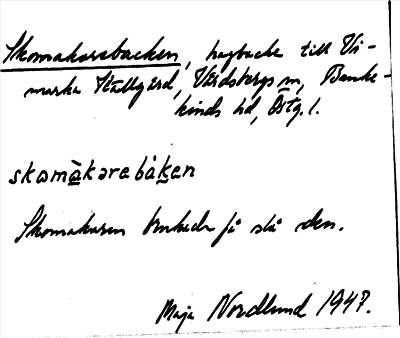 Skomakarebacken, hagbacke till Vi-
marka Stället gård, Vårdsbergs sn, Banke-
kinds hd, Östg. l.
skomàkarebàken
Skomakaren brukade få slå den.
Maja Nordlund 1947.